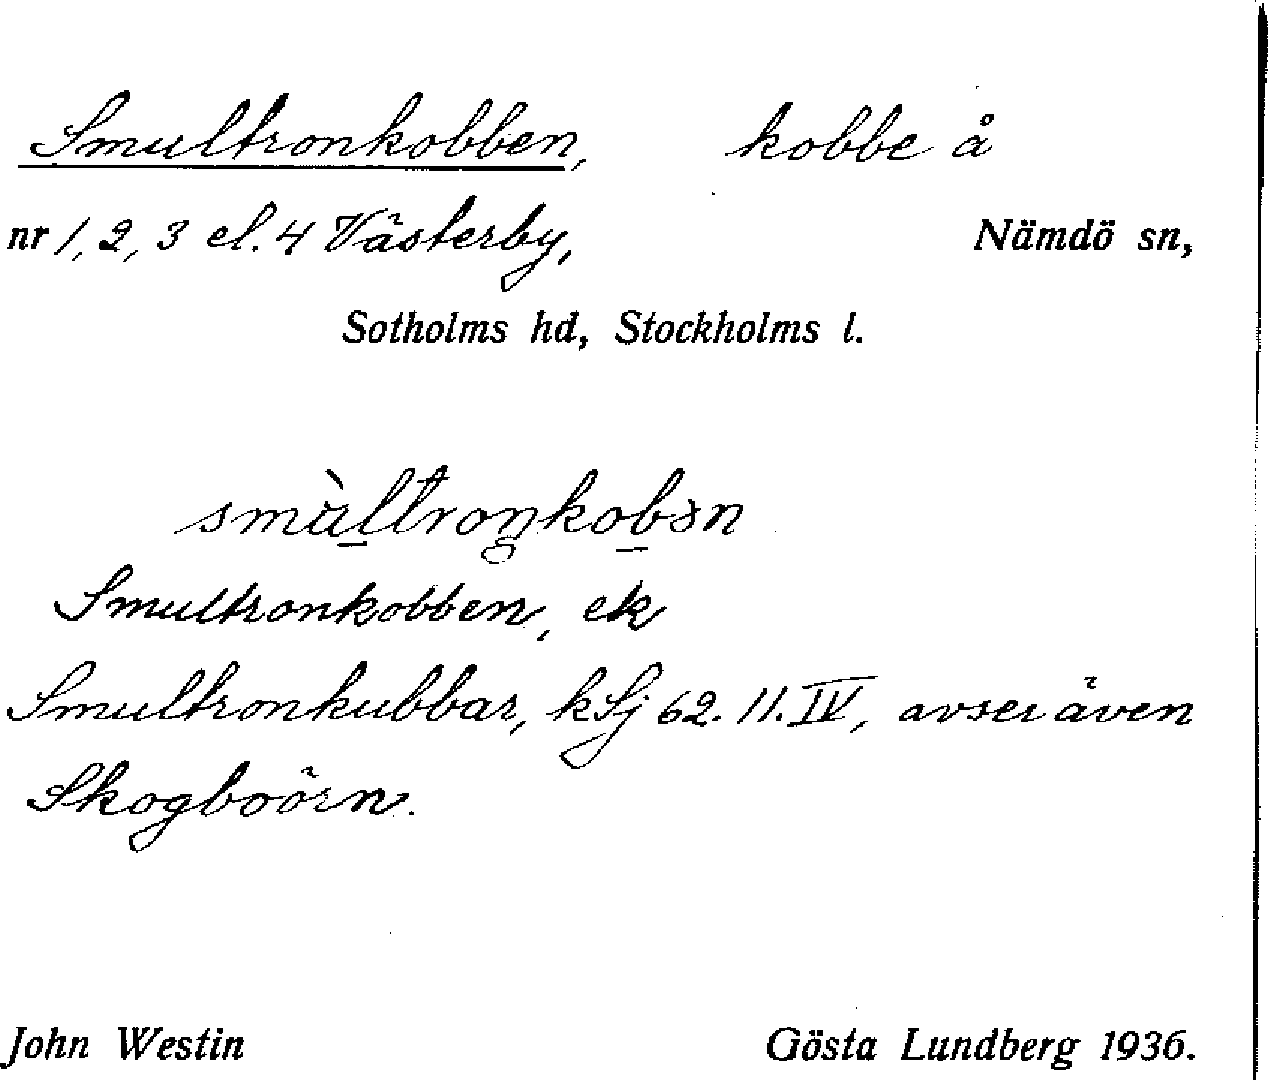 Smultronkobben, kobbe å
nr 1, 2, 3 el. 4 Västerby, Nämdö sn,
Sotholms hd, Stockholms l.
smùltroŋkobən
Smultronkobben, ek
Smultronkubbar, kSj 62. 11. IV, avser även
Skogboörn.
John Westin Gösta Lundberg 1936.